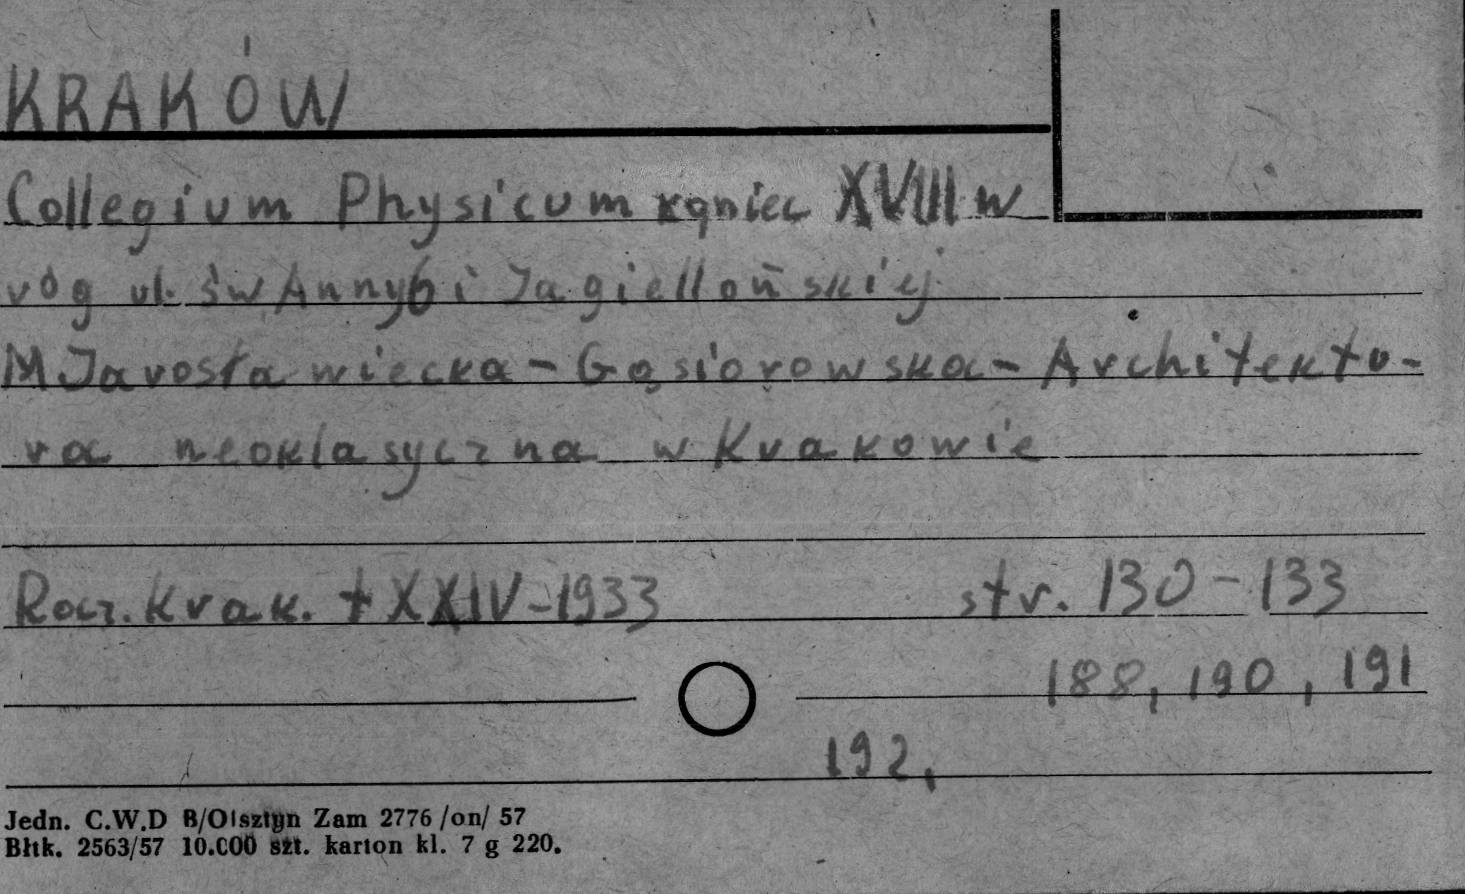 KRAKÓW
Collegium Physicum koniec XVIII w
róg ul. św Anny 6 i Jagiellońskiej
M Jarosławiecka - Gąsiorowska - Architektu-
ra neoklasyczna w Krakowie
Rocz. Krak. t XXIV - 1933 str. 130 - 133
188, 190, 191
192,
Jedn. C.W.D B/Olsztyn Zam 2776 /on/ 57
Błtk. 2563/57 10.000 szt. karton kl. 7 g 220.